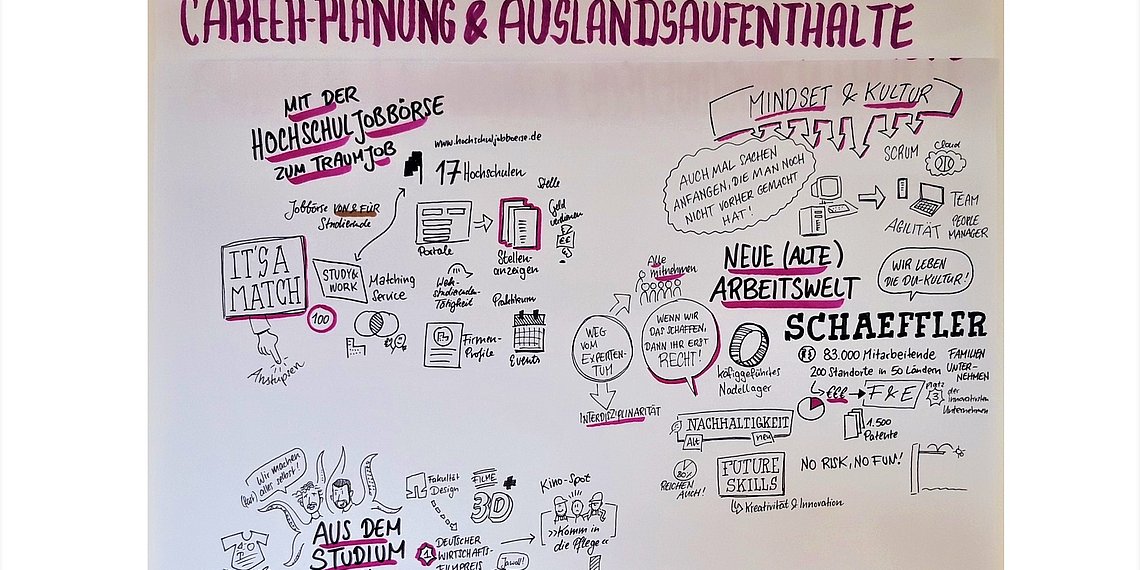 CAREER-PLANUNG & AUSLANDSAUFENTHALTE
MIT DER
HOCHSCHULJOBBÖRSE
ZUM TRAUMJOB
www.hochschuljobboerse.de
17 Hochschulen
Jobbörse VON & FÜR
Studierende
IT'S A
MATCH
100
Anstupsen
STUDY &
WORK
Matching
Service
Portale
Stelle
Stellen-
anzeigen
Geld
verdienen
€€
Werk-
studierenden-
Tätigkeit
Praktikum
Firmen-
Profile
Events
MINDSET & KULTUR
AUCH MAL SACHEN
ANFANGEN, DIE MAN NOCH
NICHT VORHER GEMACHT
HAT!
SCRUM
Cloud
TEAM
AGILITÄT
PEOPLE
MANAGER
NEUE (ALTE)
ARBEITSWELT
WIR LEBEN
DIE DU-KULTUR!
Alle
mitnehmen
WEG
VOM
EXPERTEN-
TUM
INTERDISZIPLINARITÄT
WENN WIR
DAS SCHAFFEN,
DANN IHR ERST
RECHT!
käfiggeführtes
Nadellager
SCHAEFFLER
83.000 Mitarbeitende
200 Standorte in 50 Ländern
FAMILIEN
UNTER-
NEHMEN
€€€
F & E
Platz
3
der
innovativsten
Unternehmen
1.500
Patente
NACHHALTIGKEIT
Alt
neu
80%
REICHEN
AUCH!
FUTURE
SKILLS
Kreativität & Innovation
NO RISK, NO FUN!
Wir machen
(fast) alles selbst!
AUS DEM
STUDIUM
Fakultät
Design
FILME
3D
1
DEUTSCHER
WIRTSCHAFTS-
FILMPREIS
Jawoll!
Kino-Spot
»Komm in
die Pflege«